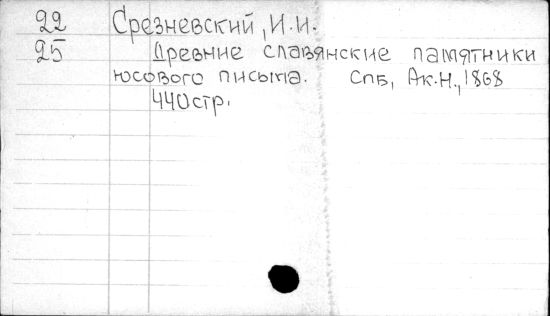 22 Срезневский, И.И.
25 Древние славянские памятники
юсового письма. Спб, Ак.Н., 1868
440стр.